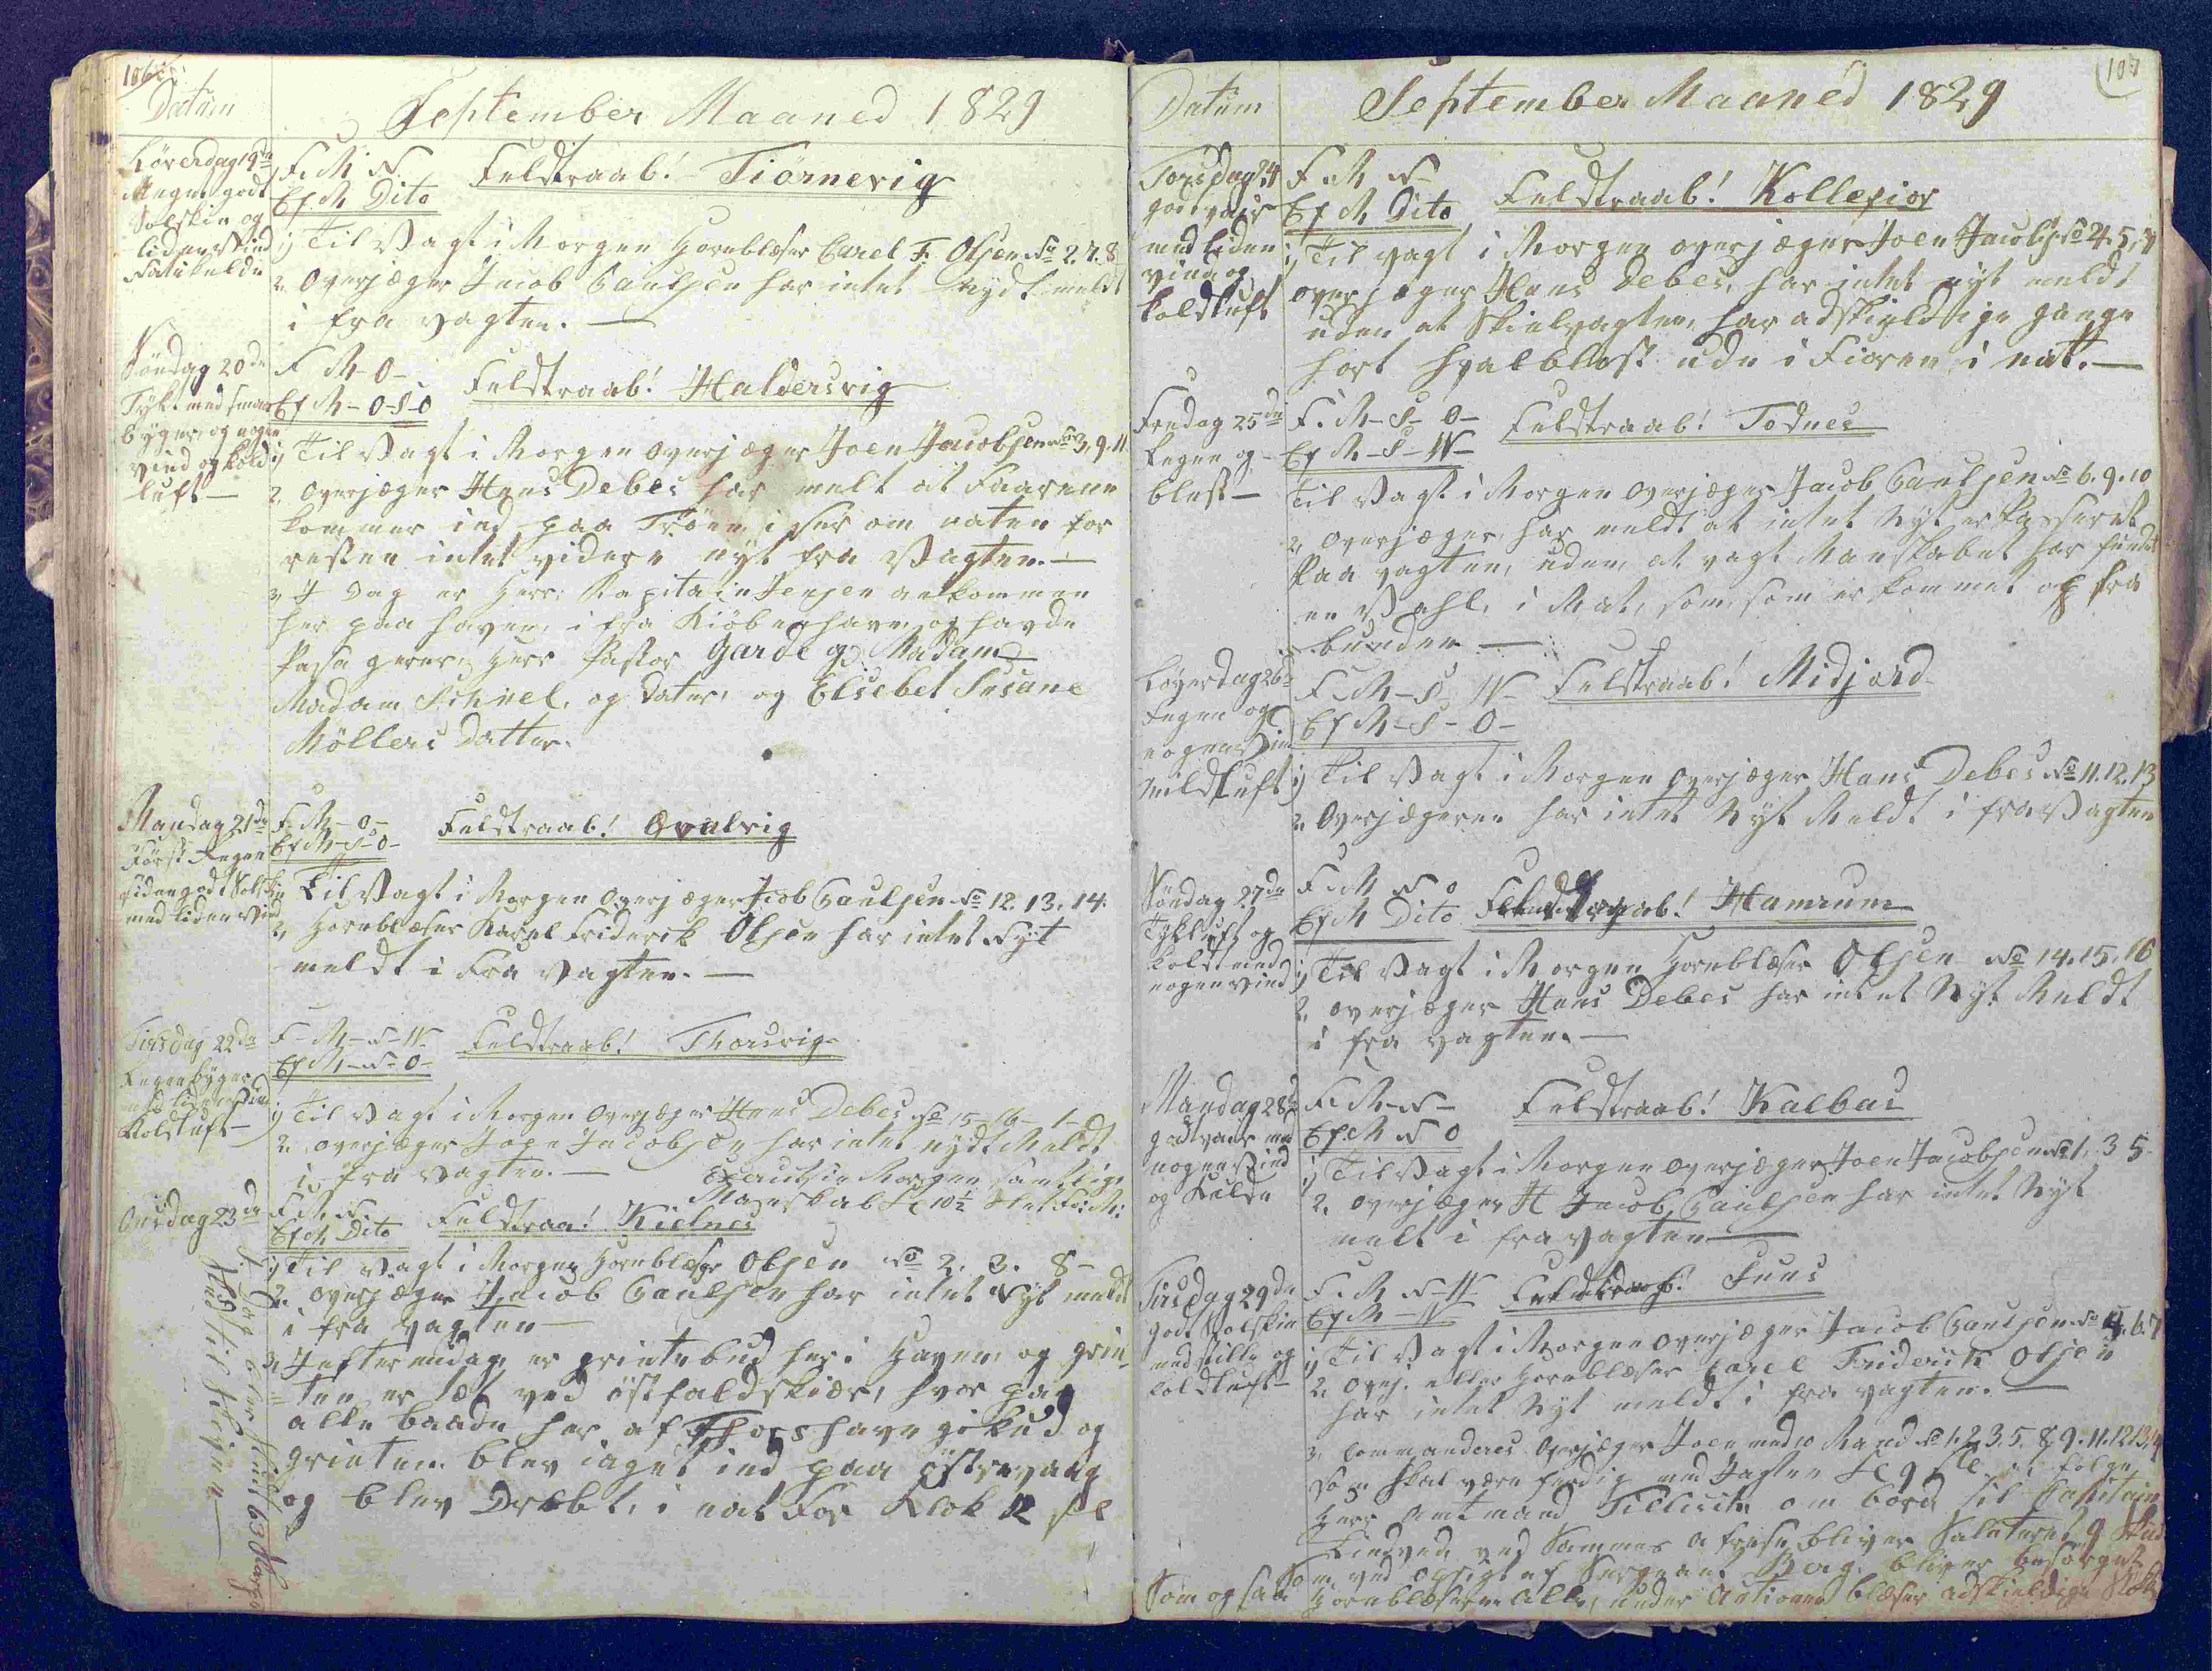 106
Datum
September Maaned 1829
Løverdag 19de
Meget godt
Solskin og
liden Vind
F. M. N.
Ef. M. Dito
Feldtraab! Tiörnevig
1) Til Vagt i Morgen Hornblæser Carel F. Olsen No 2. 7. 8
2. Overjæger Jacob Paulsen har intet Nydt meldt
i fra Vagten. —
Söndag 20de
Tykt med smaa
byger, og nogen
Vind og kold
luft —
F M - O -
Ef M - O - S - O
Feldtraab! Haldersvig
1) Til Vagt i Morgen Overjæger Joen Jacobsen No 3. 9. 11
2. Overjæger Hans Debes har melt at Faarene
kommer ind paa Trøen i sær om naten for
resten intet videre nyt fra Vagten. —
3 I Dag er Herr: Kapitain Jensen ankommen
her paa haven, i fra Kiöbenhavn, og havde
Passagerer, Herr Pastor Garde og Madam
Madam Schnel, og Dater, og Elsebet Susane
Möllers Datter.
Mandag 21de
Först Regen
siden godt Solskin
med liden Vind
F. M - O -
Ef M - S - O -
Feldtraab! Qvalvig
1) Til Vagt i Morgen Overjæger Jacob Paulsen No 12. 13. 14.
2, Hornblæser Karel Friderik Olsen har intet Nyt
meldt i Fra Vagten. —
Tirsdag 22de
Regen byger
liden Vind
Koldluft —
F - M - N - W -
Ef M - N - O -
Feldtraab! Thorsvig
1) Til Vagt i Morgen Overjæger Hans Debes No 15 - 16 - 1 -
2. Overjæger Joen Jacobsen har intet nydt Meldt
i fra Vagten. —
i Morgen samtlige
Manskab Kl 10½ Slet Fr: M:
Onsdag 23de
F. M. N.
Ef M Dito
Feldtraa! Kielnes
1) Til Vagt i Morgen Hornblæser Olsen No 2. 3. 8 -
2. Overjæger Jacob Paulsen har intet Nyt meldt
i fra Vagten —
3, I eftermidag er grindebud her i Haven, og grin¬
=ten er læt ved östfaldskiær, hvor paa
alle baade her af Thorshavn gik ud og
grinten blev iaget ind paa östrevaag
og blev Dræbt, i nat For Klok 12 sl
Datum
September Maaned 1829
107
Torsdag 24
godt vair
med liden
vind og
koldluft
F. M N -
Ef M Dito
Feldtraab! Kollefior
1) Til vagt i Morgen overjæger Joen Jacobs: No 4. 5. 7
overjæger Hans Debes, har intet nyt meldt
uden at Skielvagten, har adskieldige gange
hört hvalblost ude i Fioren, i nat. —
Fredag 25de
Regen og
blest —
F. M - S - O -
Ef M - S - W -
Feldtraab! Todnes
Til Vagt i Morgen Overjæger Jacob Paulsen No 6. 9. 10
2, Overjæger, har meldt at intet Nyt er Passeret
Paa Vagten, uden, at vagt Manskabet har fundet
en Vahl, i Nat, som, som er kommet op fra
bunden —
Løverdag 26
Regen og
nogen Vind
Mildluft
F. M - S W -
Ef M - S - O -
Feltraab! Midjord
1) Til Vagt i Morgen Overjæger Hans Debes No 11. 12. 13
2. Overjægeren har intet Nyt Meldt i fra Vagten
Söndag 27de
Tykluft og
Koldt med
nogen vind
F. M N O
Ef M Dito
Feldtraab! Hamrum
1) Til Vagt i Morgen Hornblæser Olsen No 14. 15. 16
2. overjæger Hans Debes har intet Nyt Meldt
i fra vagten. —
Mandag 28de
godtvair med
nogen Vind
og Kulde
F. M - N -
Ef. M N O
Feldtraab! Kalbak
1) Til Vagt i Morgen overjæger Joen Jacobsen No 1. 3 5.
2. overjæger H Jacob Paulsen har intet Nyt
melt i fra vagten —
Tirsdag 29de
godt Solskin
med stille og
Koldluft —
F. M N - W -
Ef M - N
Feldtraab! Suns
1) Til Vagt i Morgen overjæger Jacob Paulsen No 4. 6. 7
2. Overj. eller Hornblæser Carel Friderik Olsen
har intet Nyt meldt i fra vagten. —
3, Commanderes Overjæger Joen med 10 Mand No 1. 2. 3. 5. 8. 9. 11. 12. 13. 14
som skal være ferdig med Jagten Kl 9 at fölge
Herr Amtmand Tillisch om bord til Kapitain
ved Sammes afreise bliver Saluteret 9 Skud
ved opsigt af Sergeant Berg. bliver besörget
Som og saa Hornblæserne Alle, under Actionen blæser adskieldige Støk